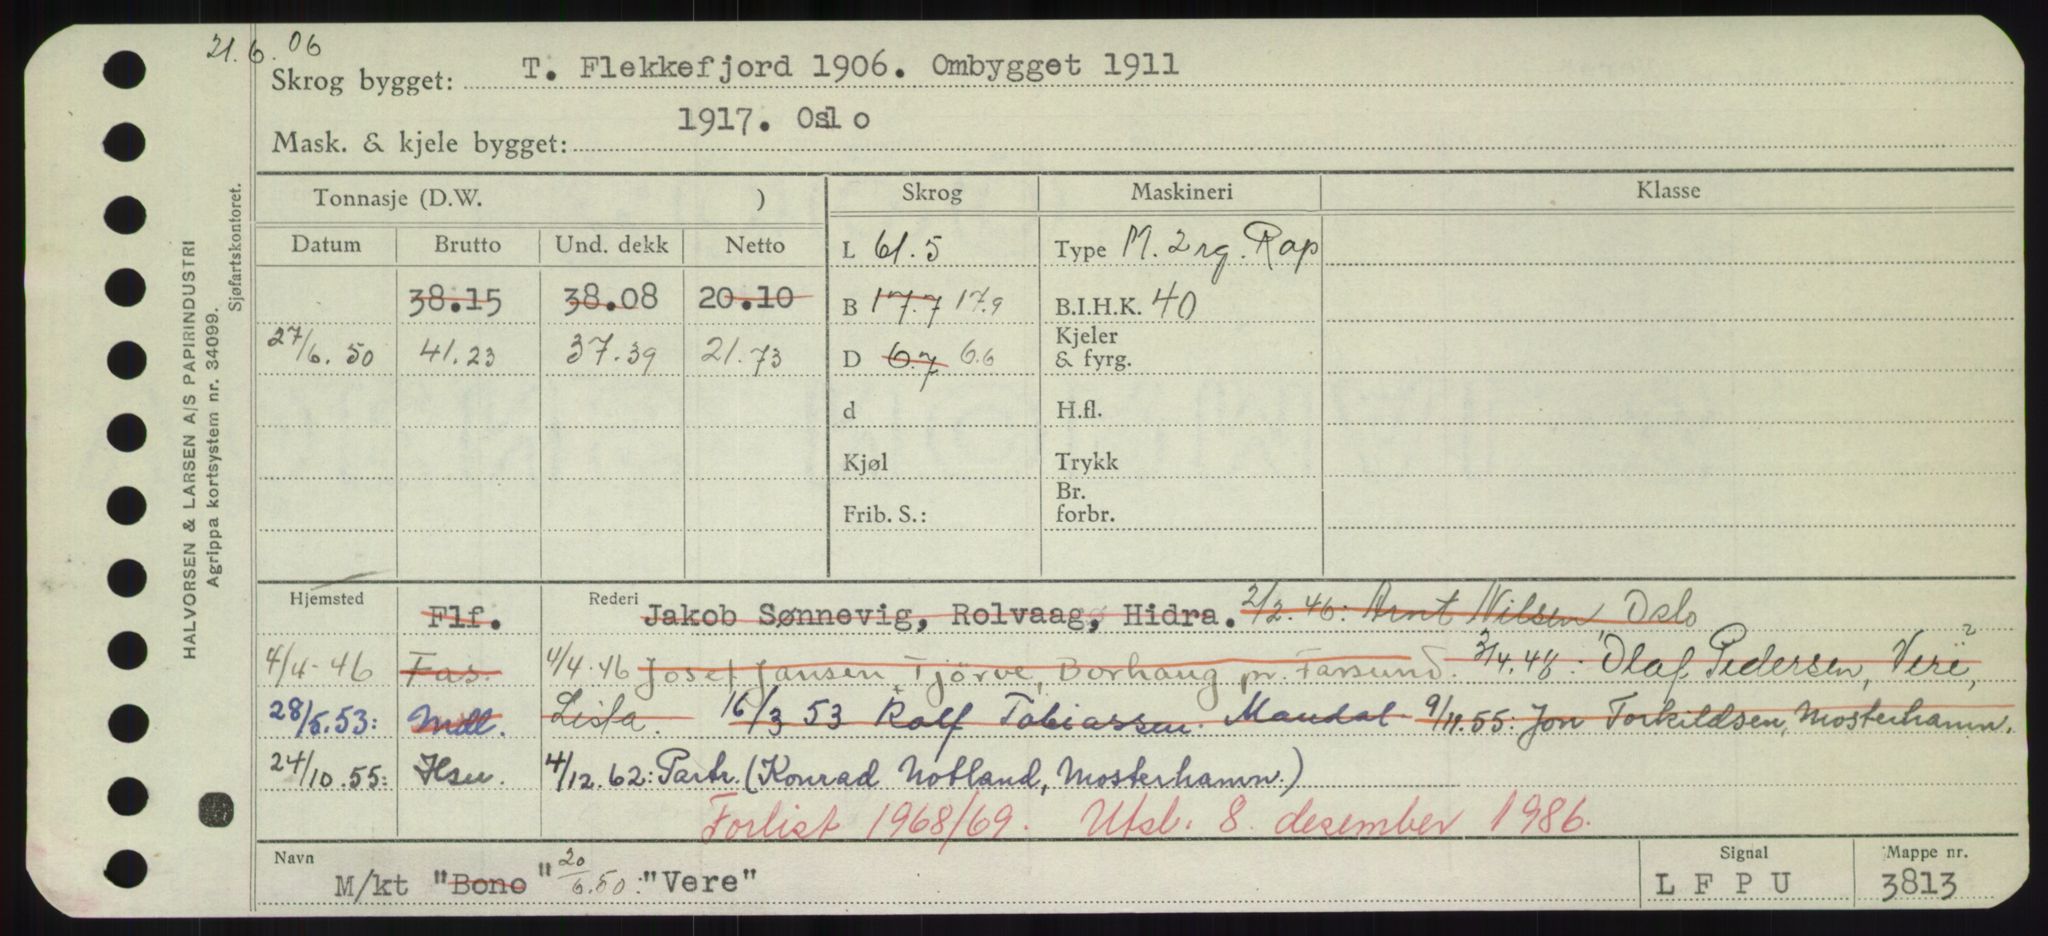 21.6.06
Skrog bygget: T. Flekkefjord 1906. Ombygget 1911
Mask. & kjele bygget: 1917. Oslo
HALVORSEN & LARSEN A/S PAPIRINDUSTRI
Agrippa kortsystem nr. 34099.
Sjøfartskontoret.
Tonnasje (D.W. ) Skrog Maskineri Klasse
Datum Brutto Und. dekk Netto L 61.5 Type M. 2 rg. Rap
38.15 38.08 20.10 B 17.7 17.9 B.I.H.K. 40
27/6.50 41.23 37.39 21.73 D 6.7 6.6 Kjeler & fyrg.
d H.fl.
Kjøl Trykk
Frib. S.: Br. forbr.
Hjemsted Flf. Rederi Jakob Sønnevig, Rolvaag, Hidra. 2/2.46: Arnt Nilsen, Oslo
4/4-46 Fas. 4/4.46 Josef Jansen, Tjörve, Borhaug pr. Farsund. 3/4.48: Olaf Pedersen, Vere,
28/5.53: Mdl. Lista. 16/3 53 Rolf Tobiassen. Mandal 9/11.55: Jon Torkildsen, Mosterhamn.
24/10.55: Hsu. 4/12.62: Partr. (Konrad Notland, Mosterhamn.)
Forlist 1968/69. Utsl. 8. desember 1986.
Navn M/kt "Bono" 20/6.50: "Vere" Signal LFPU Mappe nr. 3813